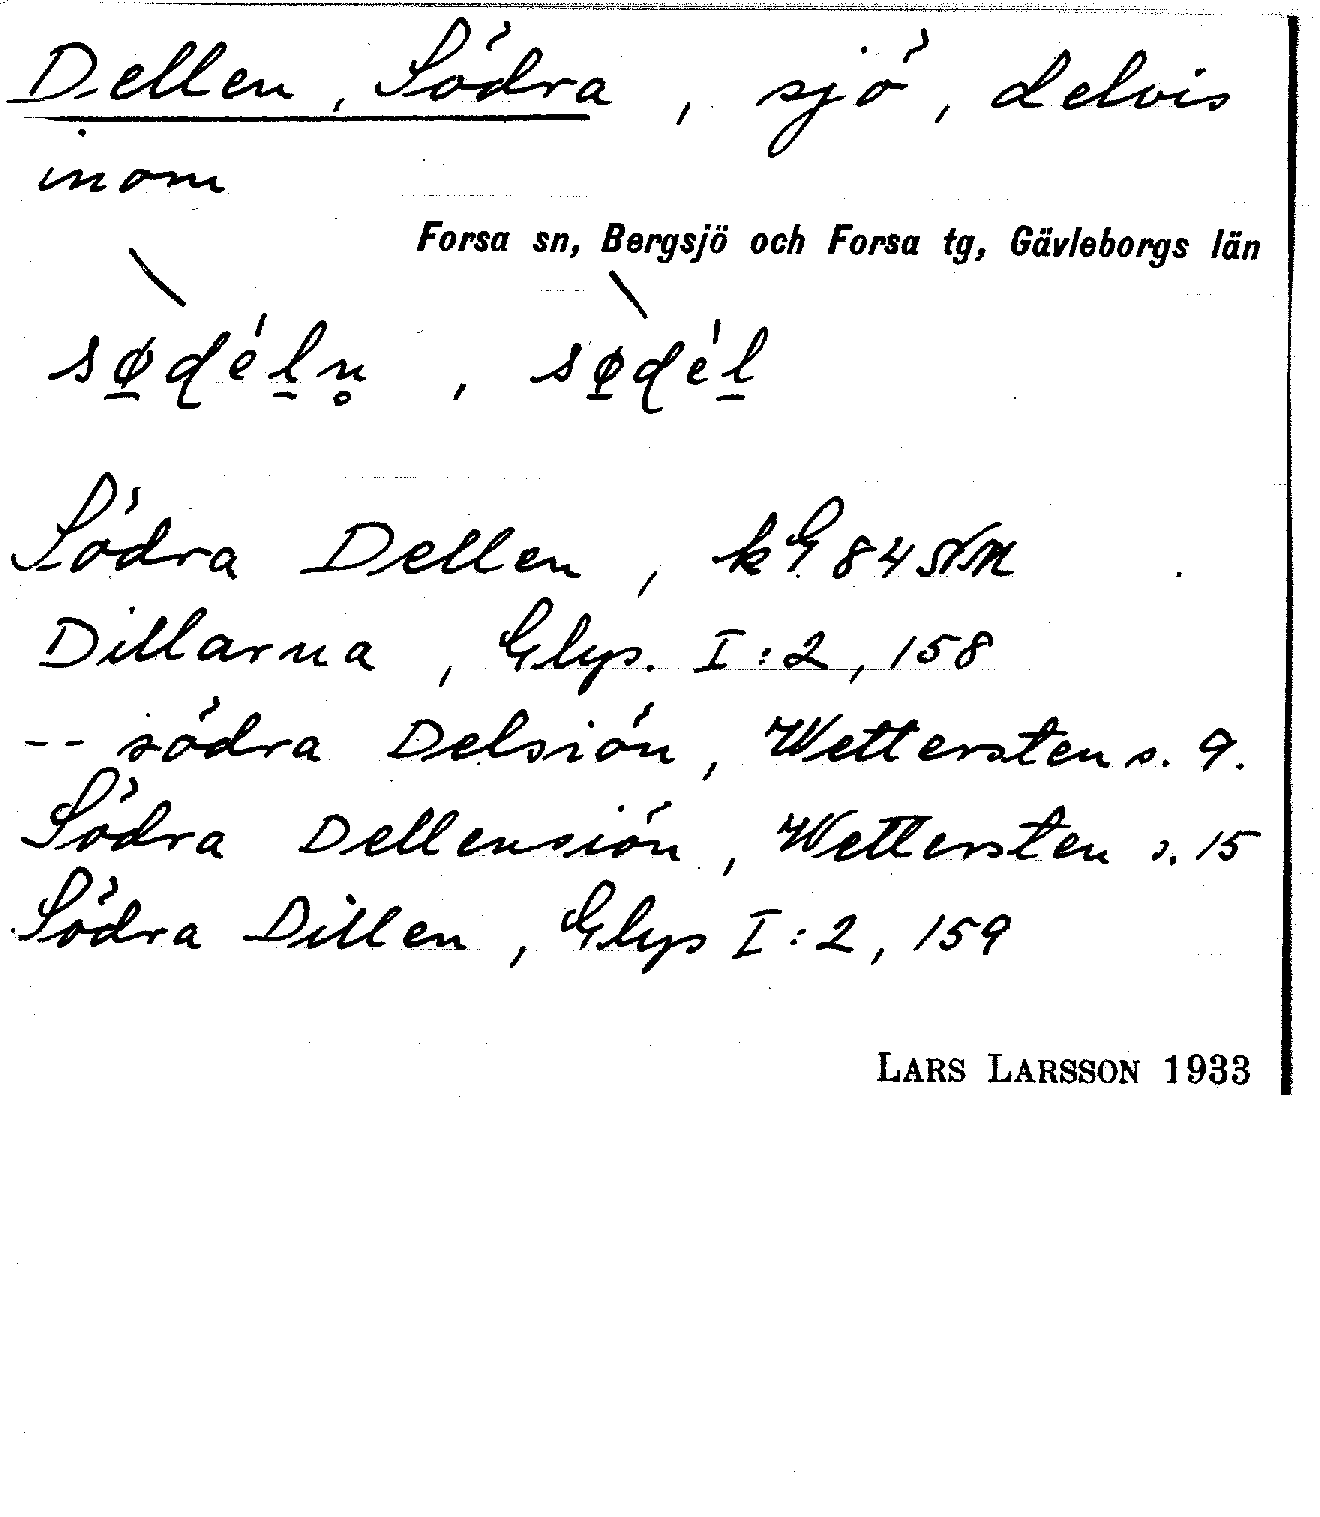 Dellen, Södra, sjö, delvis
inom
Forsa sn, Bergsjö och Forsa tg, Gävleborgs län
Södra Dellen, kG 84
Dillarna, Glys. I:2, 158
-- södra Delsión, Wettersten s. 9.
Södra Dellensión, Wettersten s. 15
Södra Dillen, Glys I:2, 159
LARS LARSSON 1933